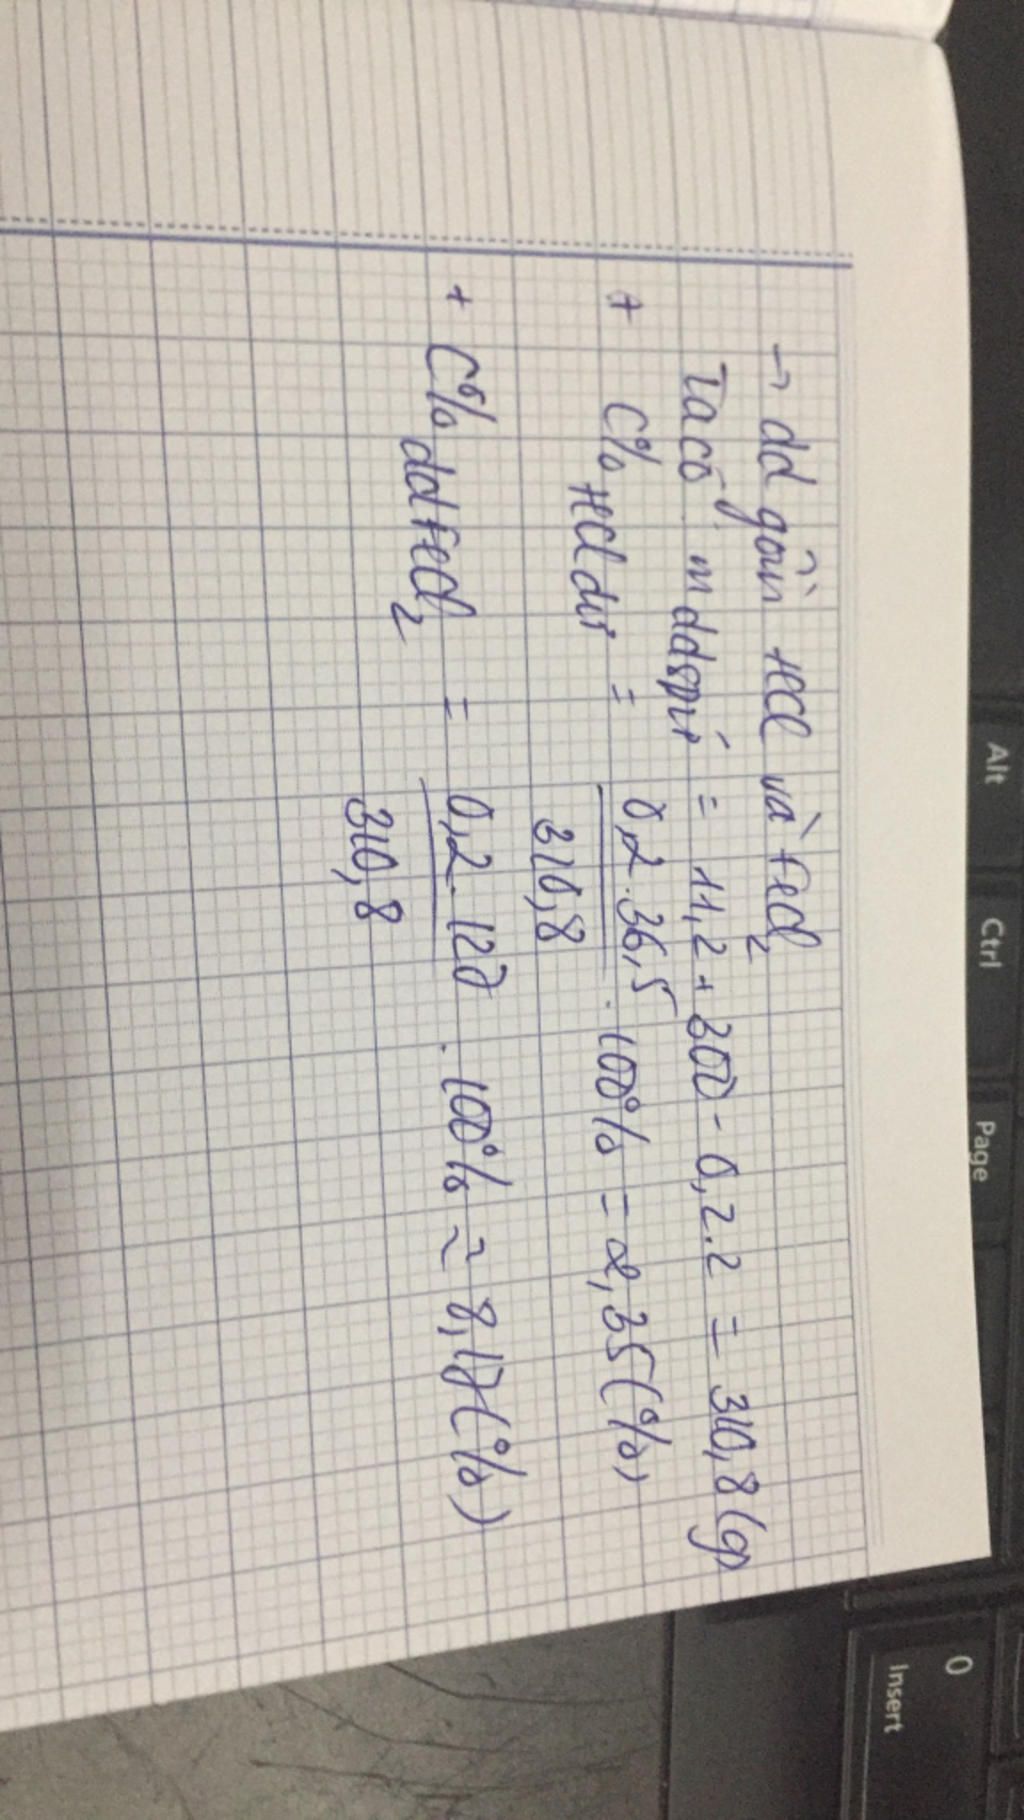 → dd gồm HCl và FeCl2
Ta có m ddspứ = 11,2 + 300 - 0,2.2 = 310,8 (g)
+ C% HCl dư = 0,2.36,5 / 310,8 . 100% = 2,35 (%)
+ C% dd FeCl2 = 0,2.127 / 310,8 . 100% ≈ 8,17 (%)
Alt
Ctrl
Page
0
Insert